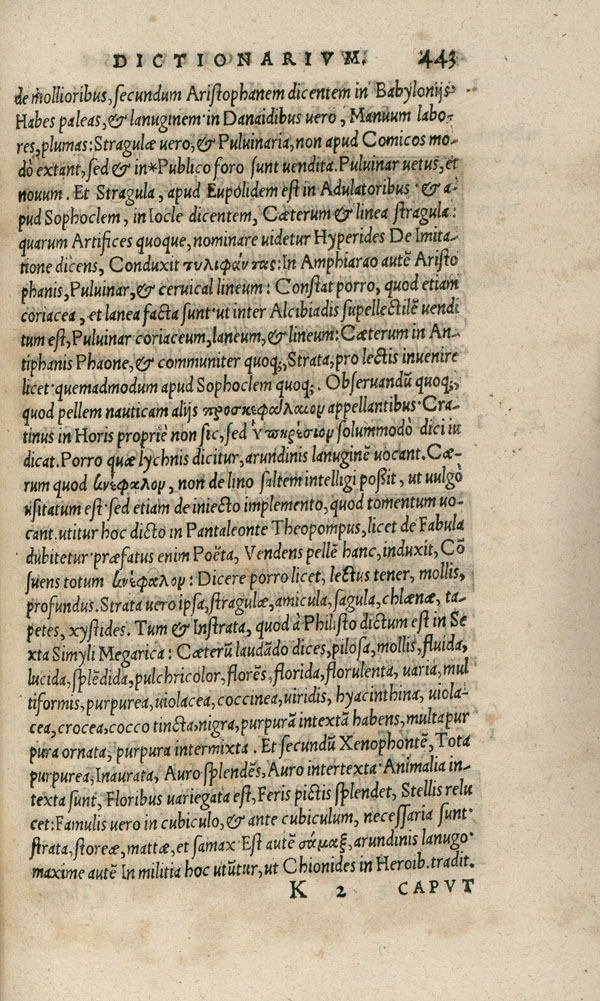 DICTIONARIVM. 443
de mollioribus, secundum Aristophanem dicentem in Babylonijs·
Habes paleas, & lanuginem· in Danaidibus uero, Manuum labo-
res, plumas: Stragulæ uero, & Puluinaria, non apud Comicos mo-
dò extant, sed & in*Publico foro sunt uendita. Puluinar uetus, et
nouum. Et Stragula, apud Eupolidem est in Adulatoribus· & a-
pud Sophoclem, in Iocle dicentem, Cæterum & linea stragula:
quarum Artifices quoque, nominare uidetur Hyperides De Imita-
tione dicens, Conduxit τυλιφάντας: In Amphiarao autē Aristo
phanis, Puluinar, & ceruical lineum: Constat porro, quod etiam
coriacea, et lanea facta sunt· ut inter Alcibiadis supellectilē uendi
tum est, Puluinar coriaceum, laneum, & lineum: Cæterum in An-
tiphanis Phaone, & communiter quoq;, Strata, pro lectis inuenire
licet· quemadmodum apud Sophoclem quoq;. Obseruandū quoq;,
quod pellem nauticam alijs προσκεφάλαιον appellantibus· Cra-
tinus in Horis propriè non sic, sed ὑπηρέσιον solummodò dici in
dicat. Porro quæ lychnis dicitur, arundinis lanuginē uocant. Cæ-
rum quod κνέφαλον, non de lino saltem intelligi poßit, ut uulgò
usitatum est· sed etiam de iniecto implemento, quod tomentum uo-
cant. utitur hoc dicto in Pantaleonte Theopompus, licet de Fabula
dubitetur· præfatus enim Poëta, Vendens pellē hanc, induxit, Cō
suens totum κνέφαλον: Dicere porro licet, lectus tener, mollis,
profundus. Strata uero ipsa, stragulæ, amicula, sagula, chlænæ, ta-
petes, xystides. Tum & Instrata, quod à Philisto dictum est in Se
xta Simyli Megarica: Cæterū laudādo dices, pilosa, mollis, fluida,
lucida, splēdida, pulchricolor, florēs, florida, florulenta, uaria, mul
tiformis, purpurea, uiolacea, coccinea, uiridis, hyacinthina, uiola-
cea, crocea, cocco tincta, nigra, purpurā intextā habens, multapur
pura ornata, purpura intermixta. Et secundū Xenophontē, Tota
purpurea, Inaurata, Auro splendēs, Auro intertexta· Animalia in-
texta sunt, Floribus uariegata est, Feris pictis splendet, Stellis relu
cet: Famulis uero in cubiculo, & ante cubiculum, necessaria sunt·
strata, storeæ, mattæ, et samax· Est autē σάμαξ, arundinis lanugo·
maxime autē In militia hoc utūtur, ut Chionides in Heroib. tradit.
K 2 CAPVT